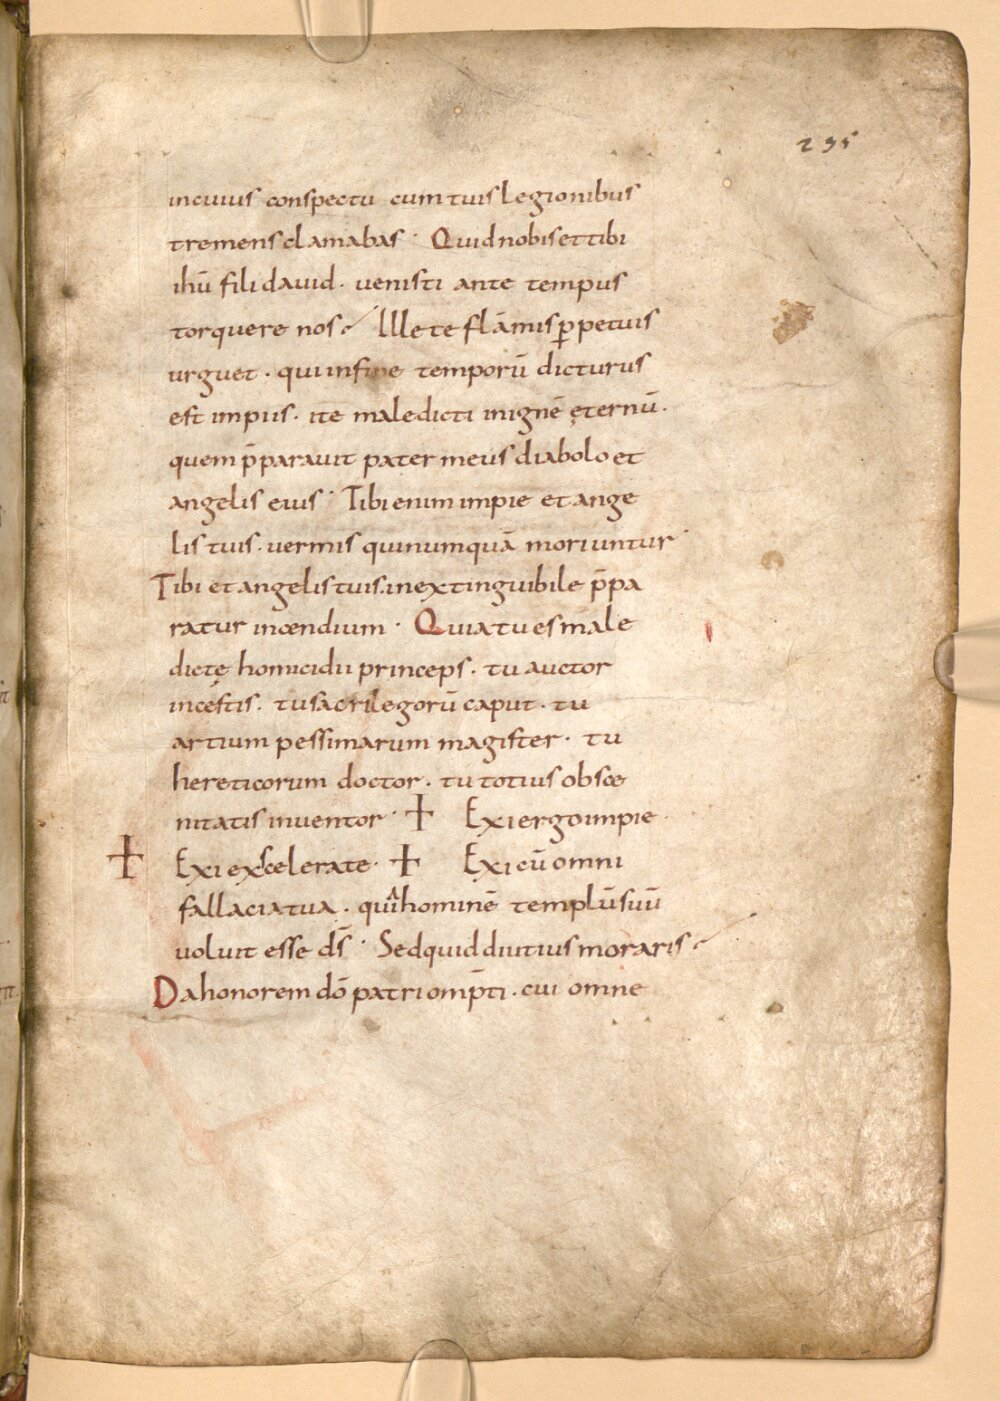 235
incuius conspectu cum tuis legionibus
tremens clamabas · Quid nobis et tibi
ihū fili dauid · uenisti ante tempus
torquere nos Ille te flāmis ꝑpetuis
urguet · qui in fine temporū dicturus
est impiis · ite maledicti in ignē ęternū ·
quem p̄parauit pater meus diabolo et
angelis eius · Tibi enim impie et ange
lis tuis · uermis qui numquā moriuntur
Tibi et angelis tuis · inextinguibile p̄pa
ratur incendium · Quia tu es male
dictę homicidii princeps · tu auctor
incęstis · tu sacrilegorū caput · tu
artium pessimarum magister · tu
hereticorum doctor · tu totius obsce
nitatis inuentor · + Exi ergo impie ·
+ Exi exscelerate · + Exi cū omni
fallacia tua · quia hominē templū suū
uoluit esse dS̄ · Sed quid diutius moraris
Da honorem dō patri omp̄ti · cui omne